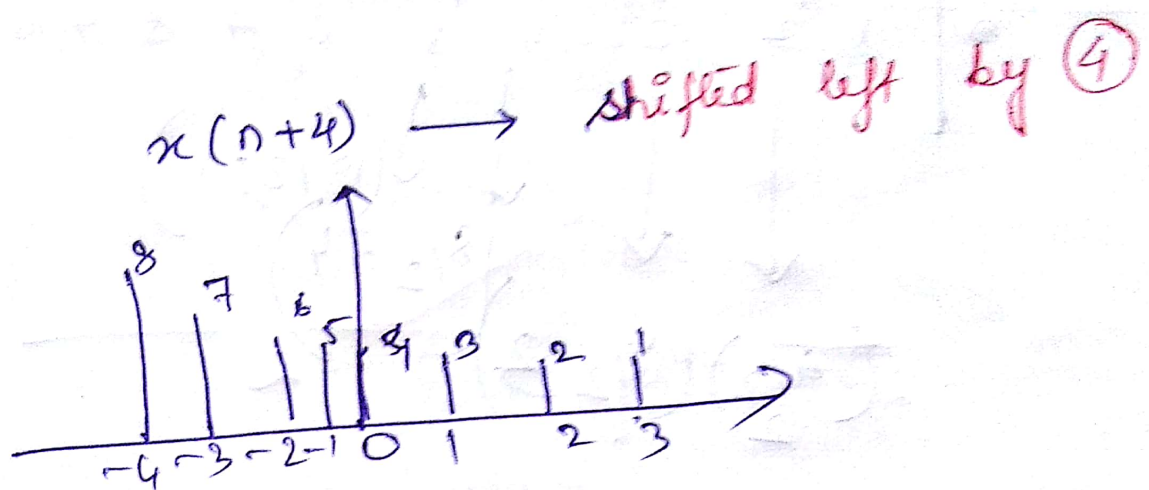 x(n+4) → shifted left by 4
8
7
6
5
4
3
2
1
-4 -3 -2 -1 0 1 2 3